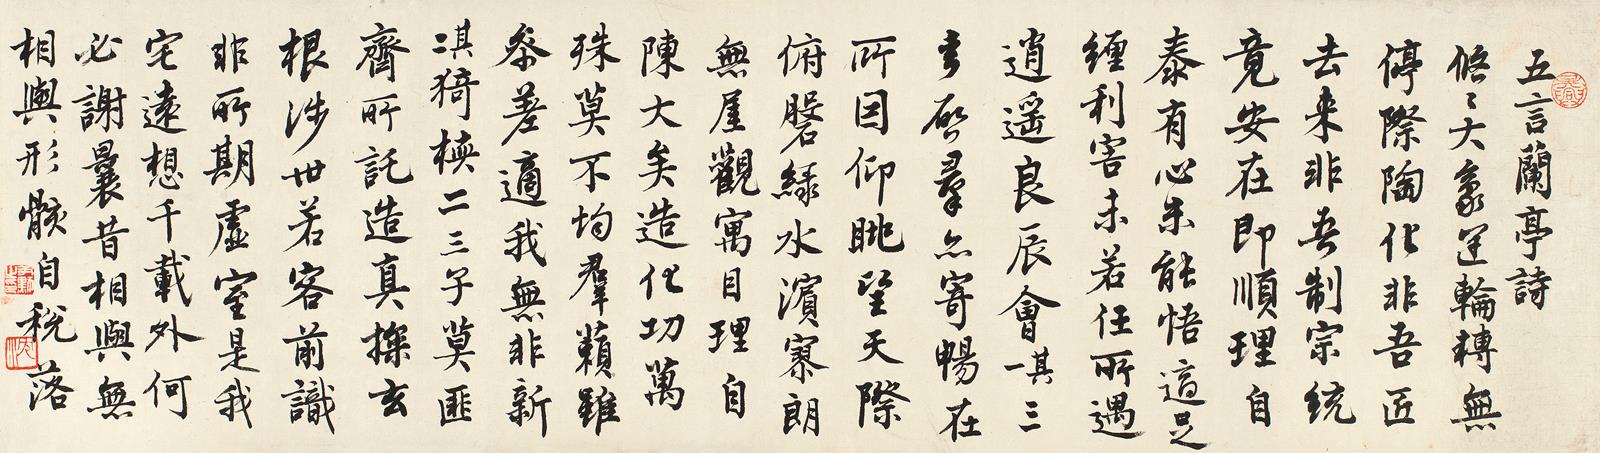 五言蘭亭詩
悠〻大象運輪轉無
停際陶化非吾匠
去来非吾制宗統
竟安在即順理自
泰有心未能悟適足
纏利害未若任所遇
逍遥良辰會其一三
春啓羣品寄暢在
所因仰眺望天際
俯磐緑水濱寥朗
無厓觀寓目理自
陳大矣造化功萬
殊莫不均群籟雖
參差適我無非新
其二猗與二三子莫匪
齊所託造真探玄
根涉世若客前識
非所期虚室是我
宅遠想千載外何
必謝曩昔相與無
相與形骸自税落